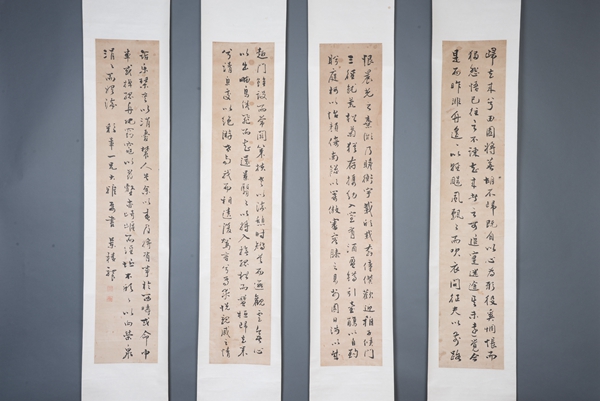 歸去來兮田園將蕪胡不歸既自以心為形役奚惆悵而
獨悲悟已往之不諫知來者之可追實迷途其未遠覺今
是而昨非舟遙遙以輕颺風飄飄而吹衣問征夫以前路
恨晨光之熹微乃瞻衡宇載欣載奔僮僕歡迎稚子候門
三徑就荒松菊猶存攜幼入室有酒盈樽引壺觴以自酌
眄庭柯以怡顏倚南窗以寄傲審容膝之易安園日涉以成
趣門雖設而常關策扶老以流憩時矯首而遐觀雲無心
以出岫鳥倦飛而知還景翳翳以將入撫孤松而盤桓歸去來
兮請息交以絕游世與我而相遺復駕言兮焉求悅親戚之情
話樂琴書以消憂農人告余以春及將有事於西疇或命巾
車或棹孤舟既窈窕以尋壑亦崎嶇而經丘木欣欣以向榮泉
涓涓而始流 一兄大雅屬書